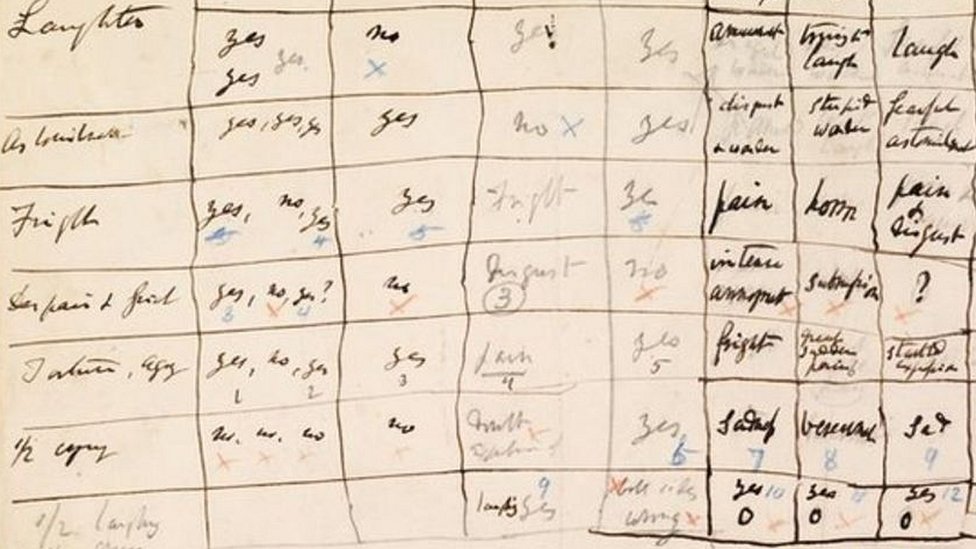 Laughter
yes no yes! yes amusement trying to laugh
yes yes x laugh
yes, yes, yes yes no x yes disgust stupid fearful
& wonder wonder astonishment
Fright yes, no, yes yes Fright yes pain horror pain
4 5 & Disgust
Despair & Grief yes, no, yes? no Disgust no intense ?
3 x x 3 x x x x
Torture, agony yes, no, yes yes pain yes fright
1 2 3 4 5
1/2 crying no. no. no no yes sadness Sad
x x x x x 6 7 8 9
1/2 laughing laughing yes both sides yes 10 yes 11 yes 12
9 wrong x 0 x 0 x 0 x